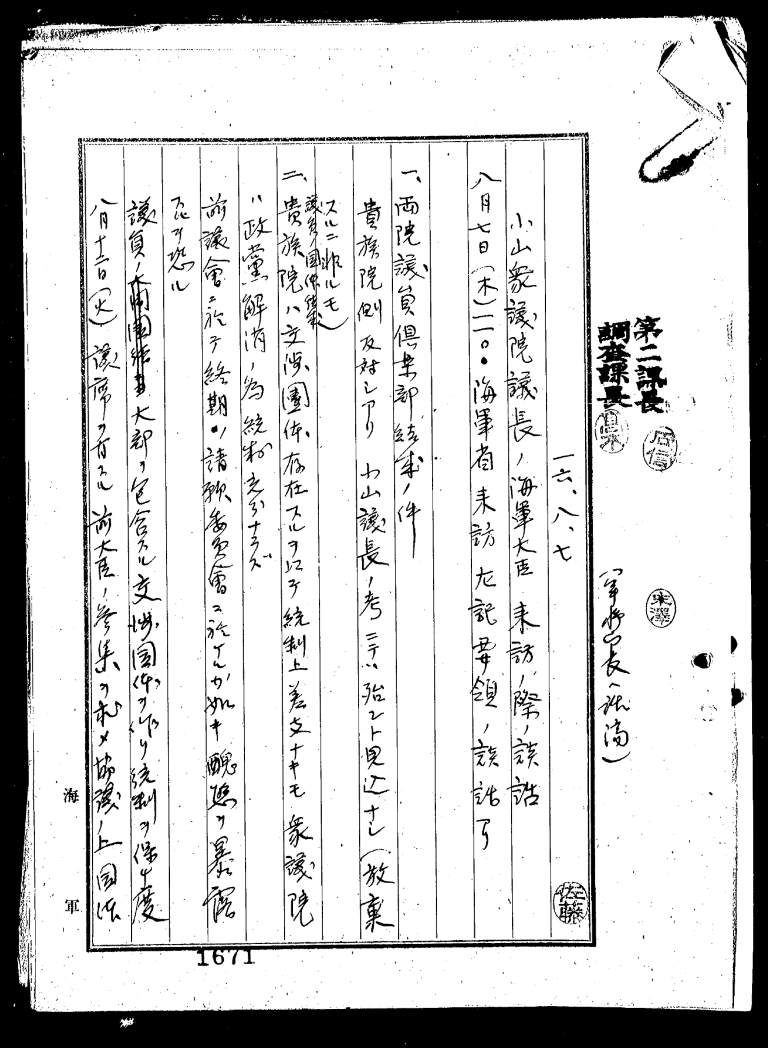 第二課長
調査課長
(軍務局長ヘ話済)
一六、八、七
小山衆議院議長ノ海軍大臣来訪ノ際ノ談話
八月七日(木)一一〇〇海軍省来訪左記要領ノ談話アリ
一、両院議員倶楽部結成ノ件
貴族院側反対シアリ 小山議長ノ考ニテハ殆ント見込ナシ(放棄
スルニ非ルモ)
議員ノ団体結成
二、貴族院ハ交渉團体存在スルヲ以テ統制上差支ナキモ衆議院
ハ政黨解消ノ為統制充分ナラズ
前議會ニ於テ終期ノ請願委員會ニ於ケルガ如キ醜態ヲ暴露
スルヲ恐ル
議員ノ大部ヲ包含スル交渉團体ヲ作リ統制ヲ保チ度
八月十二日(火)議席ヲ有スル前大臣ノ参集ヲ求メ協議ノ上團体
海軍
佐藤
米澤
1671